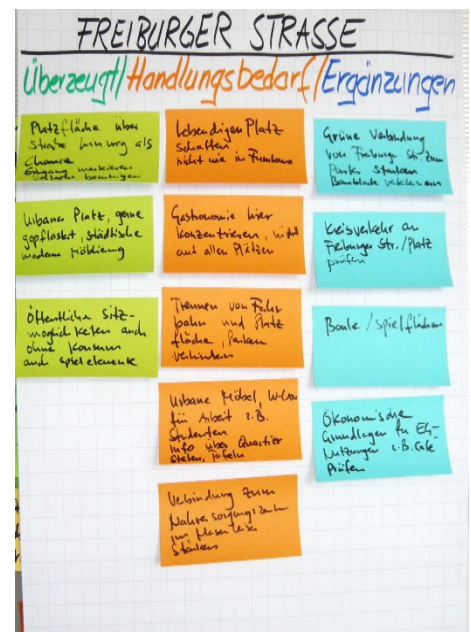 FREIBURGER STRASSE
Überzeugt/Handlungsbedarf/Ergänzungen
Platzfläche über
Straße hinweg als
Chance
Eingang markieren
Urbaner Platz, gerne
gepflastert, städtische
moderne Möblierung
Öffentliche Sitz-
möglichkeiten auch
ohne Konsum
auch Spielelemente
Lebendigen Platz
schaffen
nicht wie in
Gastronomie hier
konzentrieren, nicht
auf allen Plätzen
Trennen von Fahr
bahn und Platz
fläche, Parken
verhindern
Urbane Möbel, W-Lan
für Arbeit z.B.
Studenten
Info über Quartier
Stelen, Tafeln
Verbindung zum
Nahversorgungszentr
im
Stärken
Grüne Verbindung
von Freiburger Str. zum
Park stärken
Kreisverkehr an
Freiburger Str./Platz
prüfen
Boule/Spielflächen
Ökonomische
Grundlagen für EG-
Nutzungen z.B. Cafe
Prüfen